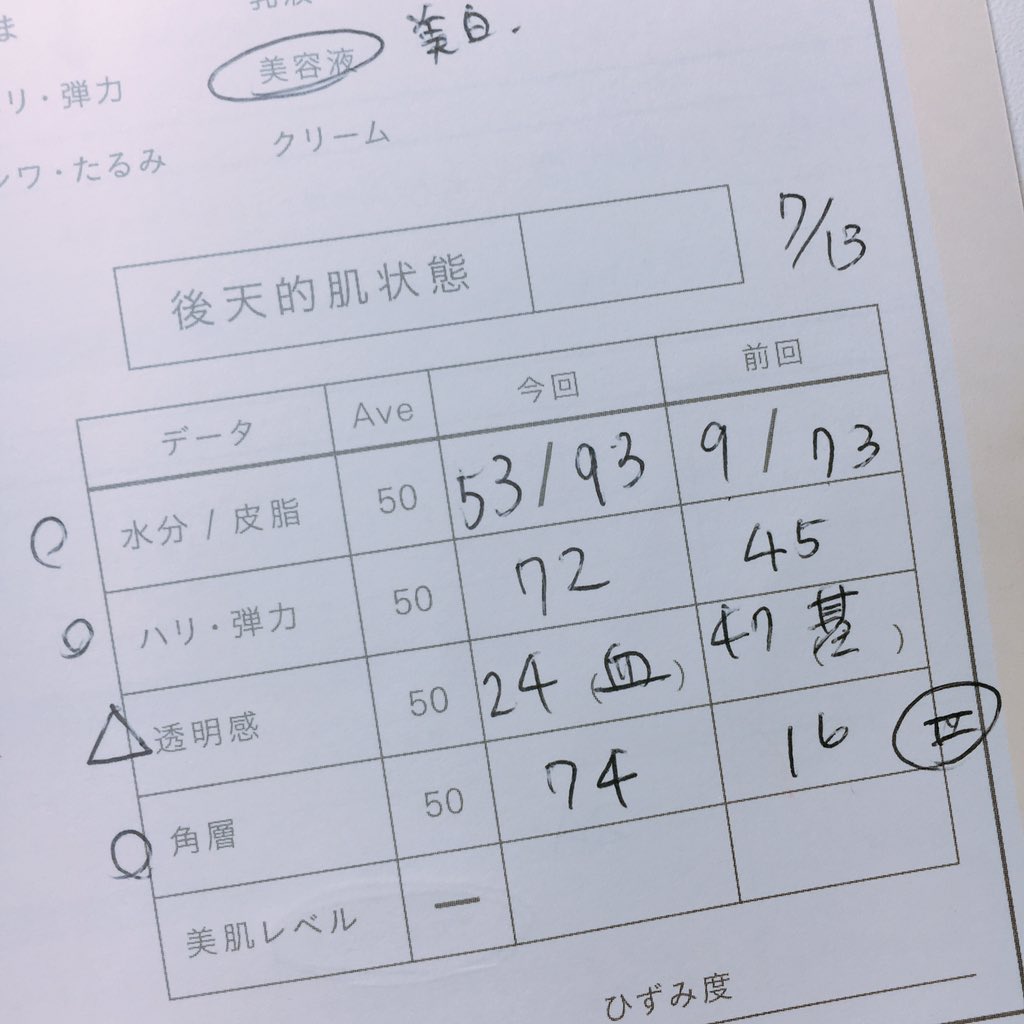 美容液 美白.
リ・弾力
クリーム
シワ・たるみ
7/13
後天的肌状態
データ Ave 今回 前回
水分 / 皮脂 50 53/93 9/73
ハリ・弾力 50 72 45
透明感 50 24 (血) 47 (基)
角層 50 74 16 IV
美肌レベル ー
ひずみ度